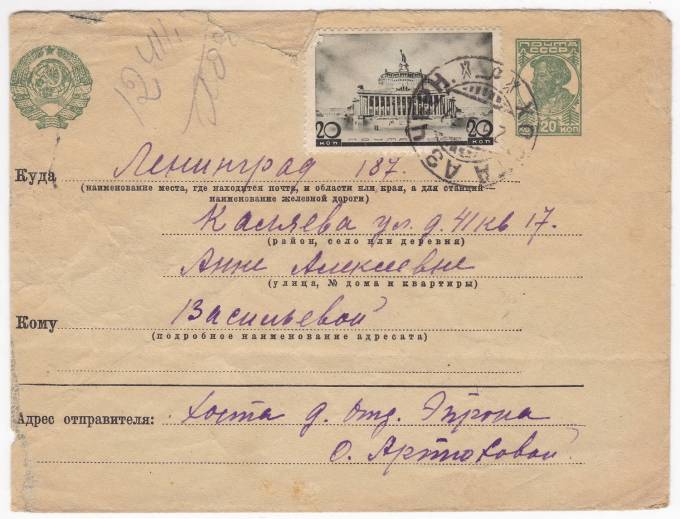 12 VIII
ПОЧТА
СССР
20 КОП
20 КОП
20 КОП
ХОСТА
Куда Ленинград 187.
(наименование места, где находится почта, и области или края, а для станций—
наименование железной дороги)
Каляева ул. д. 41 кв 17.
(район, село или деревня)
Анне Алексеевне
(улица, № дома и квартиры)
Кому Васильевой
(подробное наименование адресата)
Адрес отправителя: Хоста д. отд. Эпрона
О. Артюховой